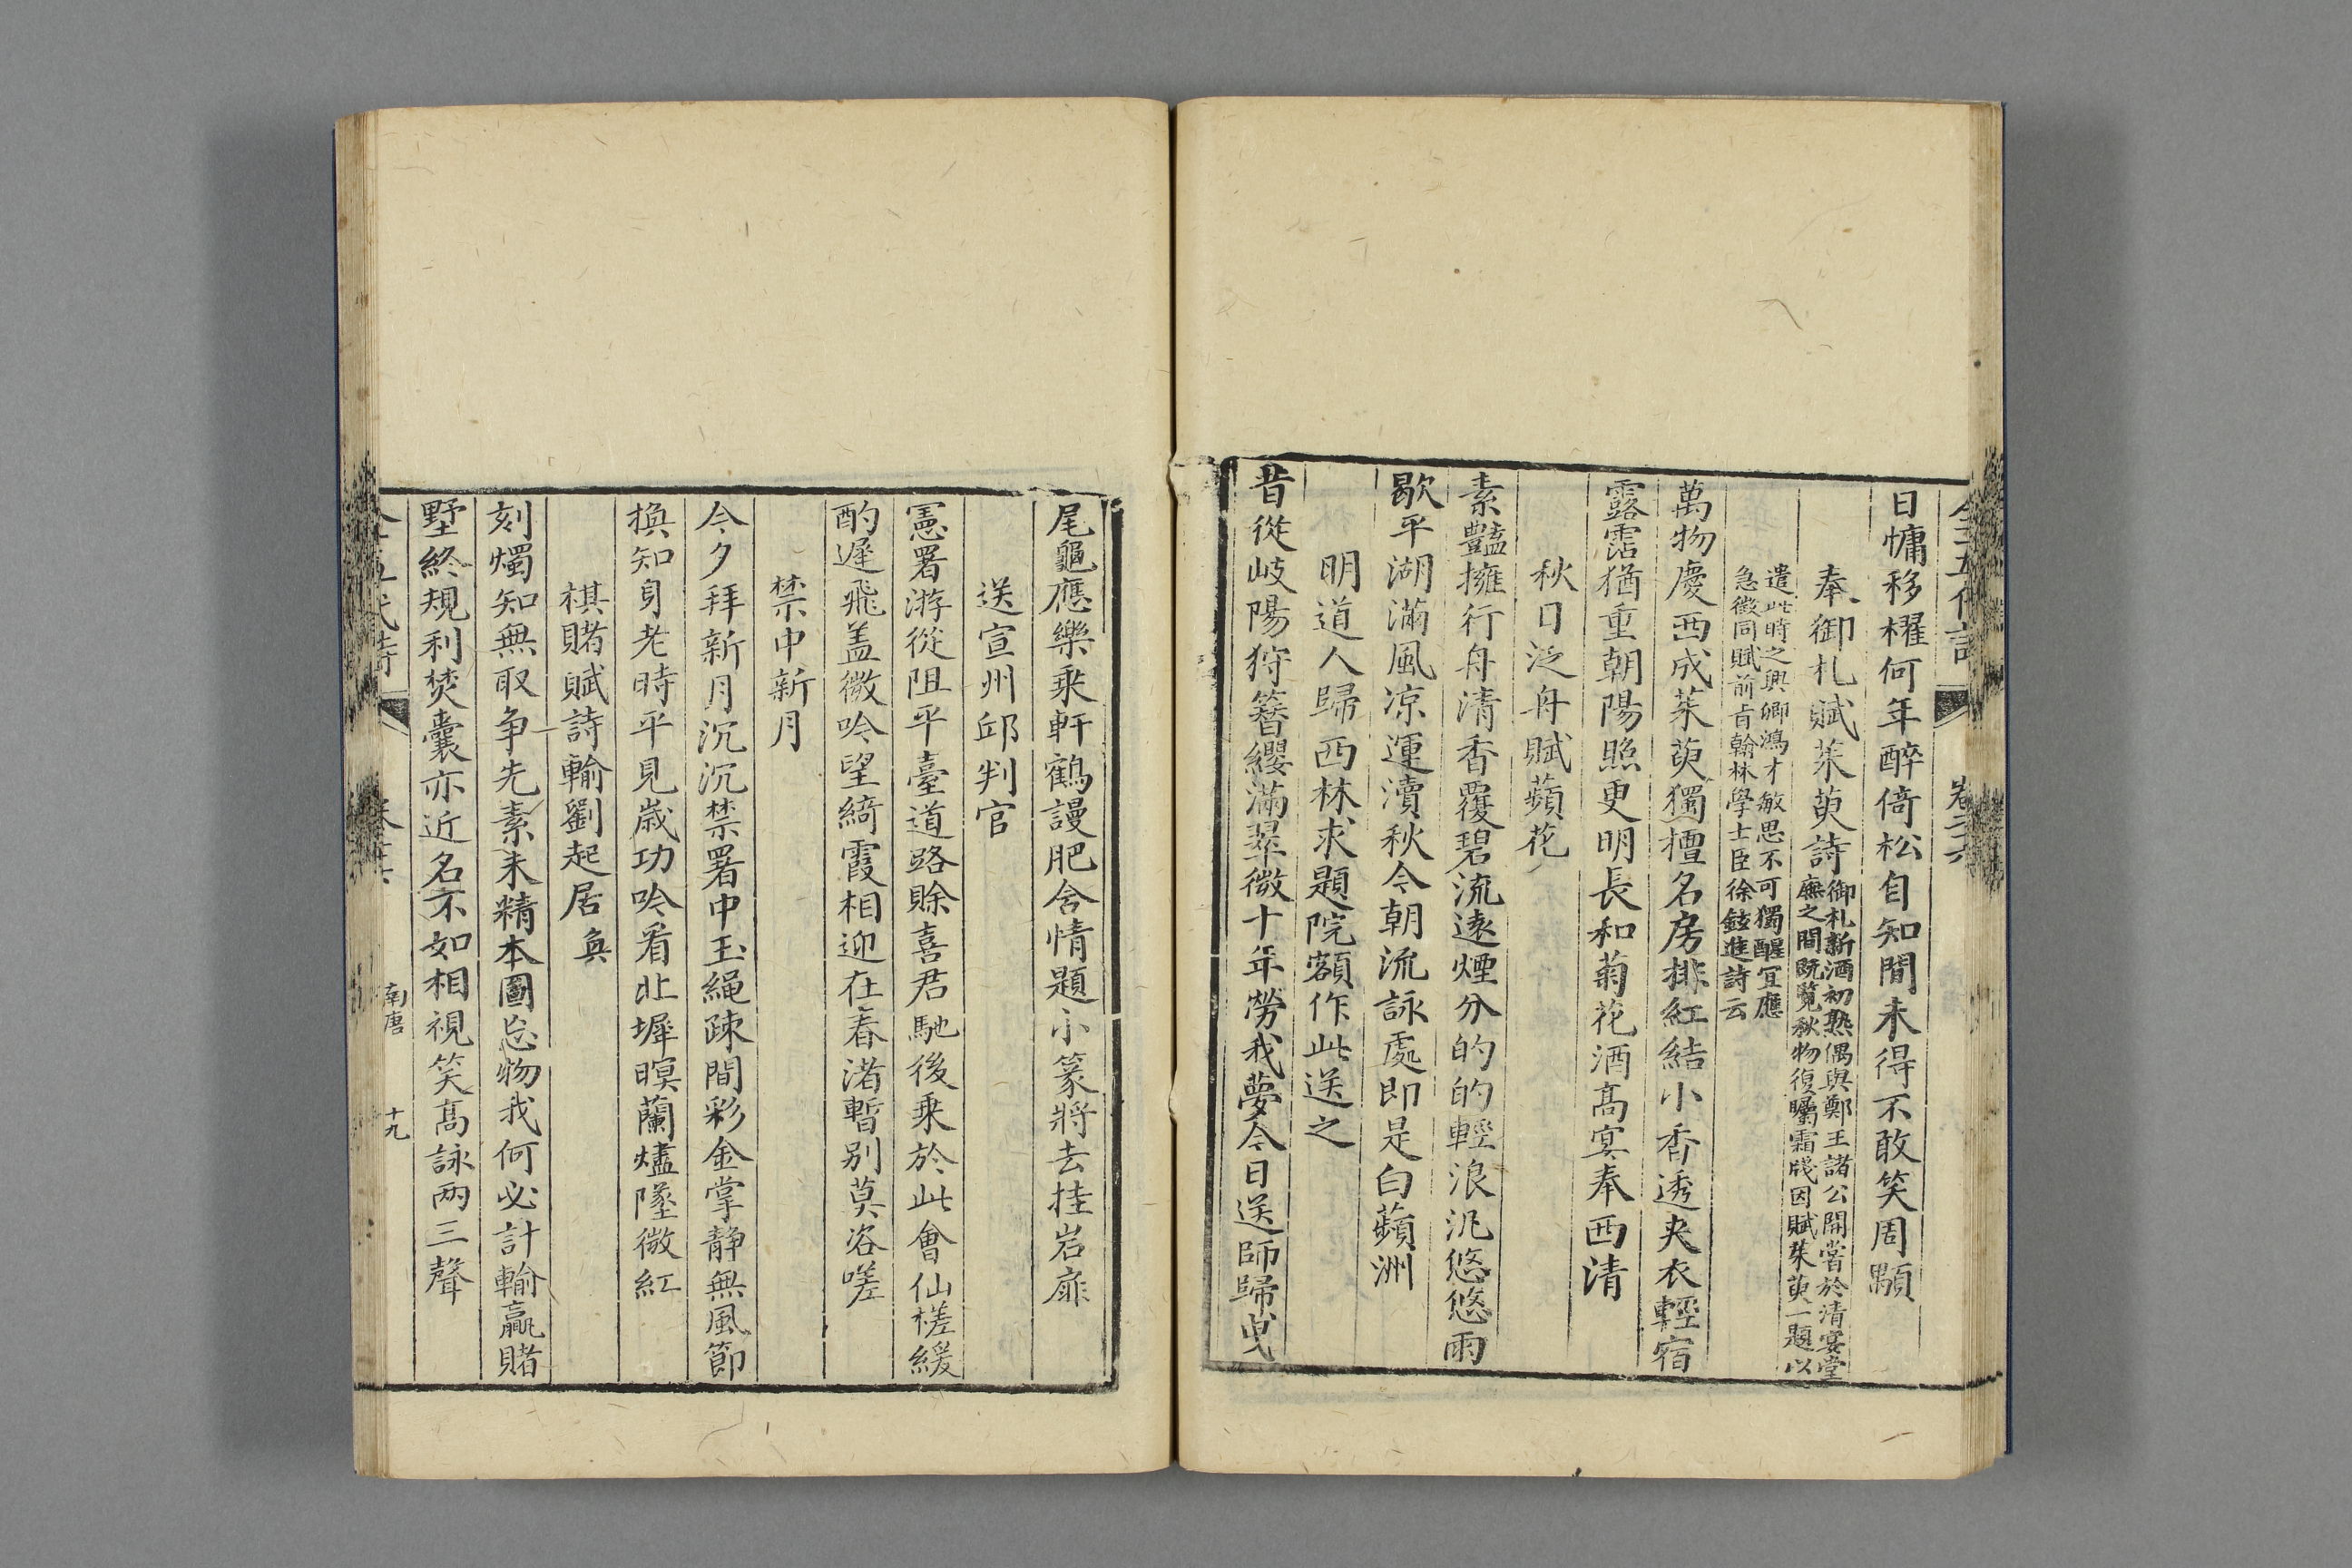 全五代詩
卷二十六
日慵移櫂何年醉倚松自知閒未得不敢笑周顒
奉御札賦茱萸詩御札新酒初熟偶與鄭王諸公開嘗於清宴堂
廡之間既覽秋物復矚霜牋因賦茱萸一題以
遣此時之興卿鴻才敏思不可獨醒宜應
急徵同賦前肯翰林學士臣徐鉉進詩云
萬物慶西成茱萸獨擅名房排紅結小香透夾衣輕宿
露霑猶重朝陽照更明長和菊花酒高宴奉西清
秋日泛舟賦蘋花
素豔擁行舟清香覆碧流遠煙分的的輕浪汎悠悠雨
歇平湖滿風涼運瀆秋今朝流詠處即是白蘋洲
明道人歸西林求題院額作此送之
昔從岐陽狩簪纓滿翠微十年勞我夢今日送師歸曳
尾龜應樂乘軒鶴謾肥含情題小篆將去挂岩扉
送宣州邱判官
憲署游從阻平臺道路賒喜君馳後乘於此會仙槎緩
酌遲飛盖微吟望綺霞相迎在春渚暫別莫咨嗟
禁中新月
今夕拜新月沉沉禁署中玉繩疎間彩金掌靜無風節
換知身老時平見歲功吟看北墀暝蘭燼墜微紅
棋賭賦詩輸劉起居奐
刻燭知無取争先素未精本圖忘物我何必計輸贏賭
墅終規利焚囊亦近名不如相視笑高詠兩三聲
全五代詩
南唐
十九